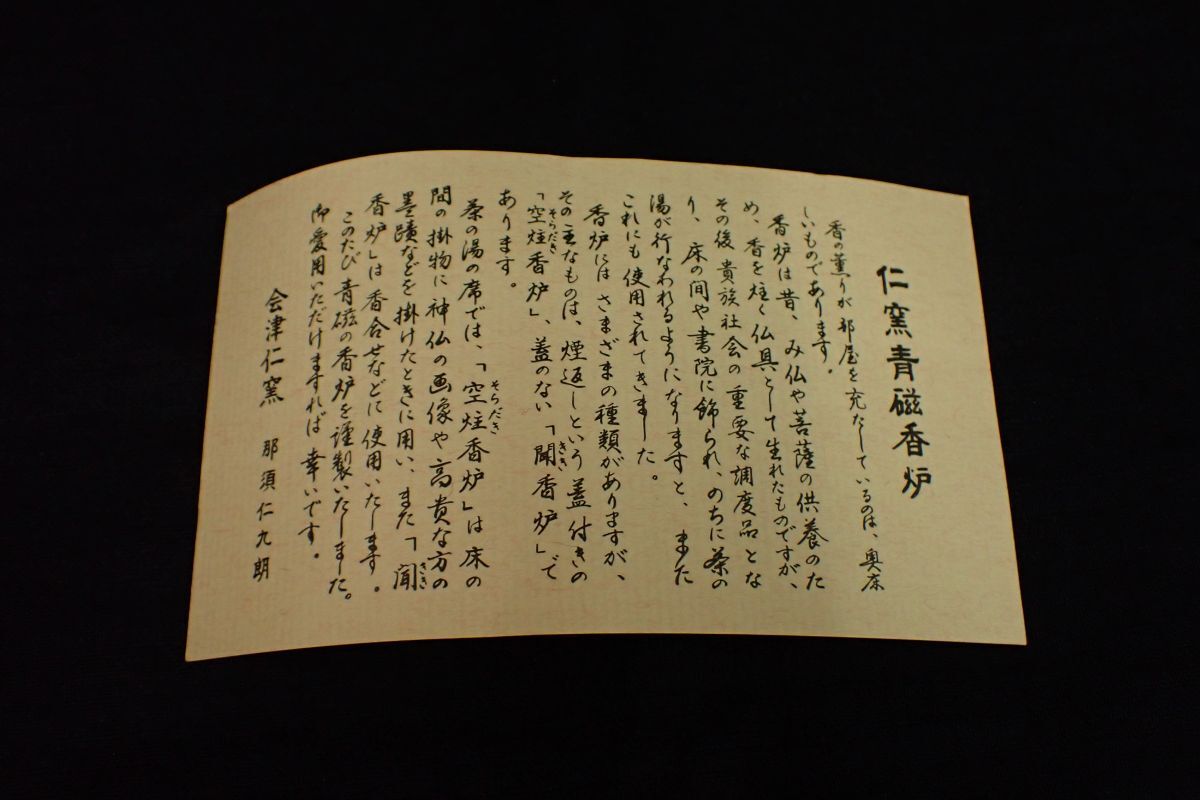 仁窯青磁香炉
香の薫りが部屋を充たしているのは、奥床
しいものであります。
香炉は昔、み仏や菩薩の供養のた
め、香を炷く仏具として生れたものですが、
その後貴族社会の重要な調度品とな
り、床の間や書院に飾られ、のちに茶の
湯が行なわれるようになりますと、また
これにも使用されてきました。
香炉にはさまざまの種類がありますが、
その主なものは、煙返しという蓋付きの
「空炷香炉」、蓋のない「聞香炉」で
そらだき
きき
あります。
茶の湯の席では、「空炷香炉」は床の
そらだき
間の掛物に神仏の画像や高貴な方の
墨蹟などを掛けたときに用い、また「聞
きき
香炉」は香合せなどに使用いたします。
このたび青磁の香炉を謹製いたしました。
御愛用いただけますれば幸いです。
会津仁窯 那須仁九朗